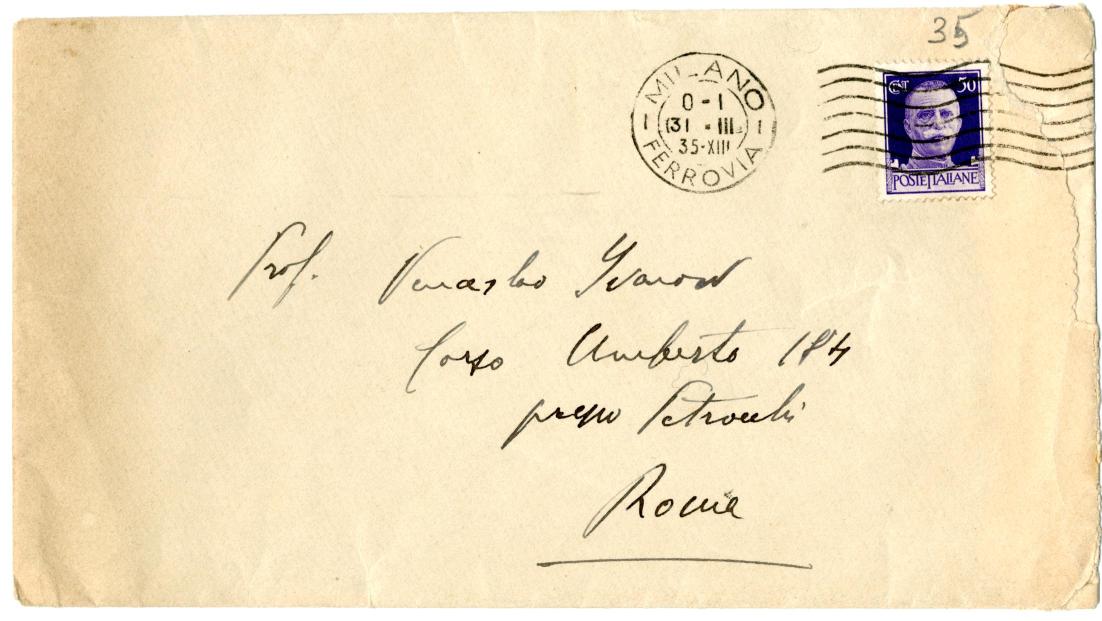 35
MILANO
0-1
31 . III.
35-XIII
FERROVIA
CENT 50
POSTE ITALIANE
Prof. Venceslao Ivanov
Corso Umberto 184
presso Petrocchi
Roma